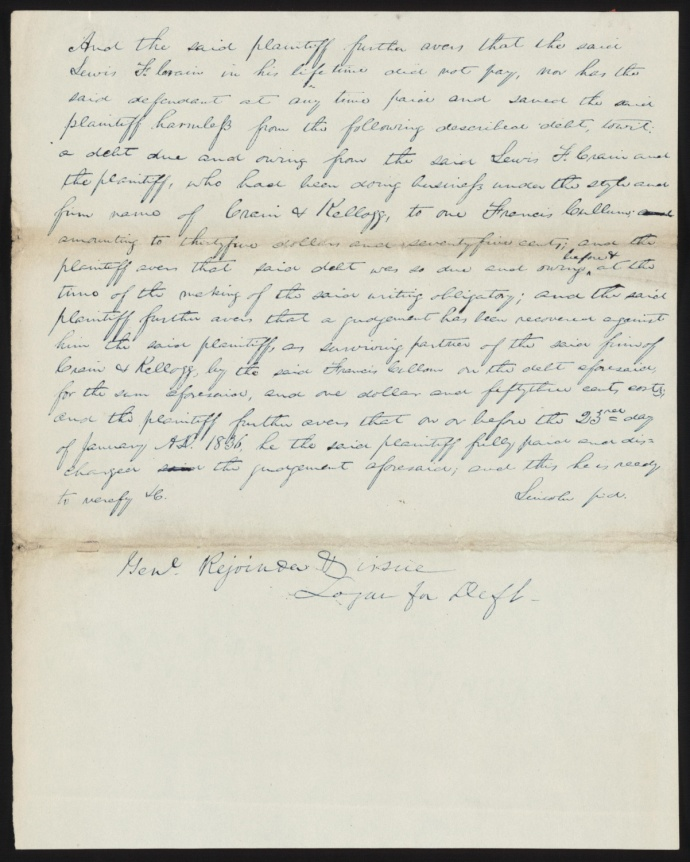 And the said plaintiff further avers that the said
Lewis F. Crain in his lifetime did not pay, nor has the
said defendant at any time paid and saved the said
plaintiff harmless from the following described debt, towit:
a debt due and owing from the said Lewis F. Crain and
the plaintiff, who had been doing business under the style and
firm name of Crain & Kellogg, to one Francis Cullum and
amounting to thirtyfive dollars and seventyfive cents; and the
plaintiff avers that said debt was so due and owing, before & at the
time of the making of the said writing obligatory; and the said
plaintiff further avers that a judgement has been recovered against
him the said plaintiff, as surviving partner of the said firm of
Crain & Kellogg, by the said Francis Cullom on the debt aforesaid,
for the sum aforesaid, and one dollar and fiftythree cents costs;
and the plaintiff further avers that on or before the 23rd day
of January A.D. 1836, he the said plaintiff fully paid and dis=
charged said the judgement aforesaid; and this he is ready
to verify &c. Lincoln p.d.
Genl. Rejoinder & issue
Logan for Deft-